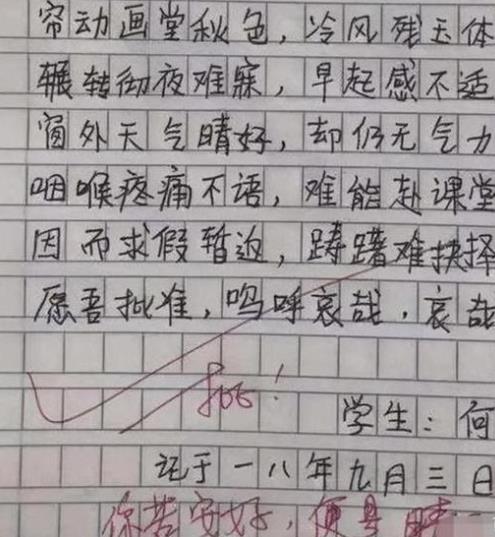 帘动画堂秋色，冷风残玉体
辗转彻夜难寐，早起感不适
窗外天气晴好，却仍无气力
咽喉疼痛不语，难能赴课堂
因而求假暂返，踌躇难抉择
愿吾批准，呜呼哀哉，哀哉
批！
学生：何
记于一八年九月三日
你若安好，便是晴